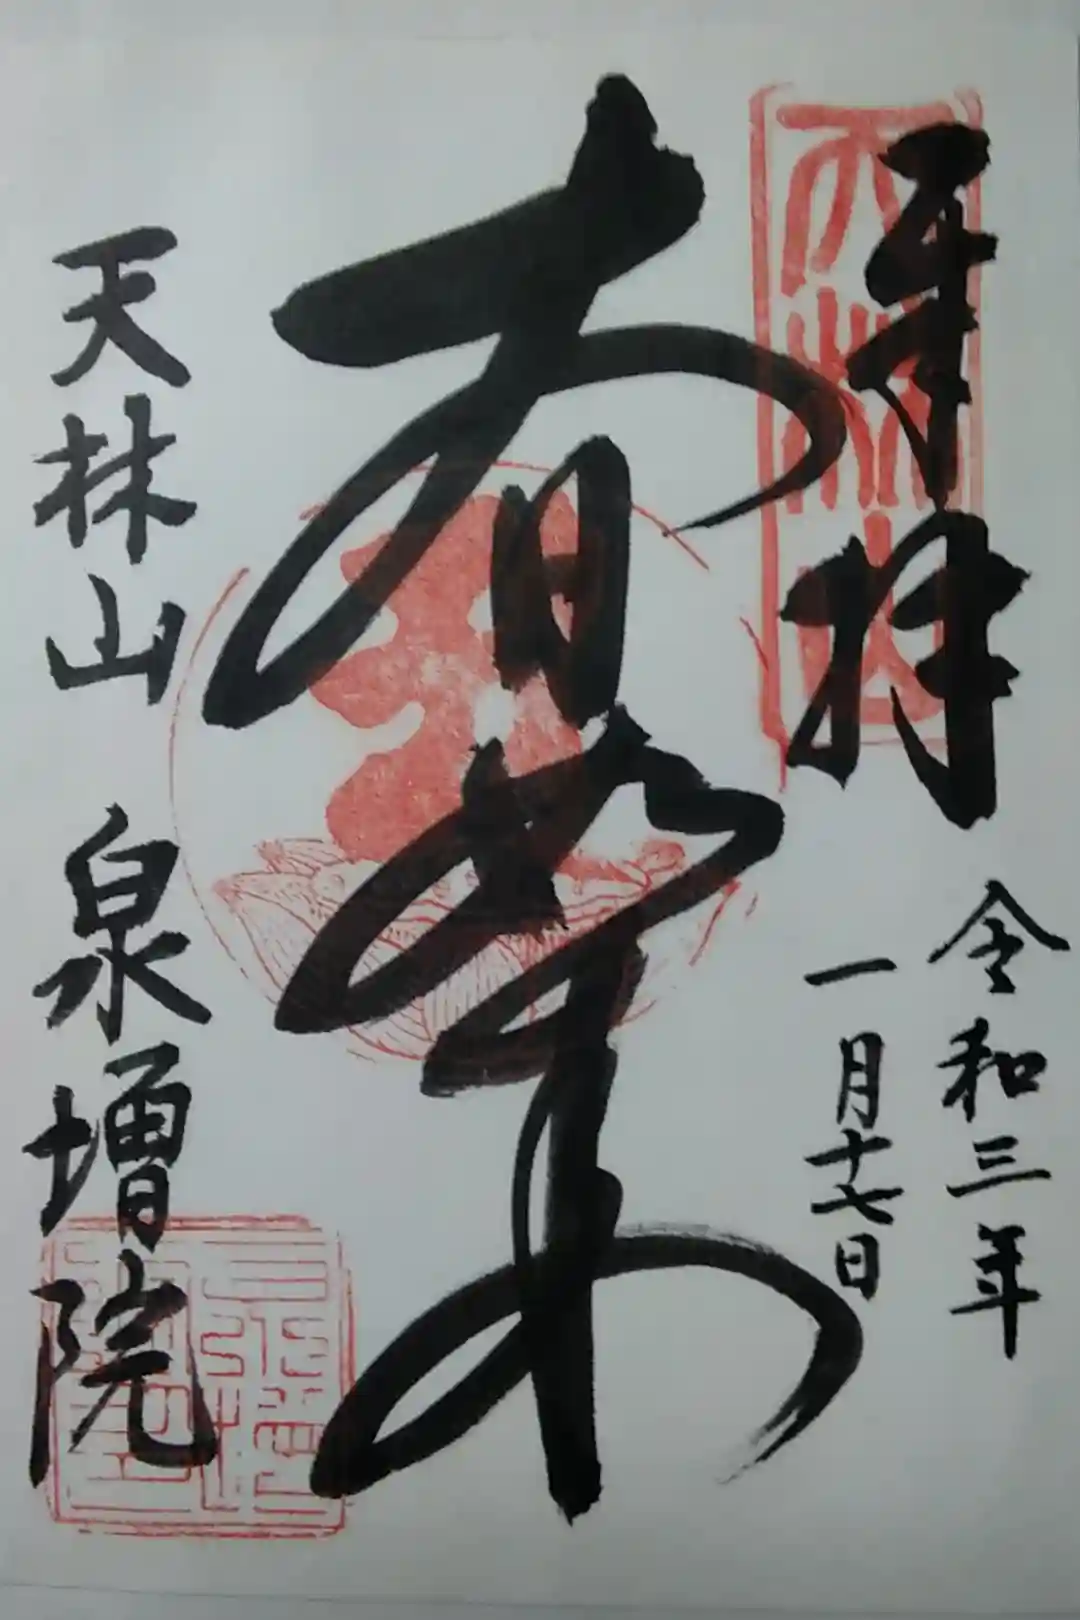 奉拝
天林山
令和三年
一月十七日
大日如来
天林山 泉増院